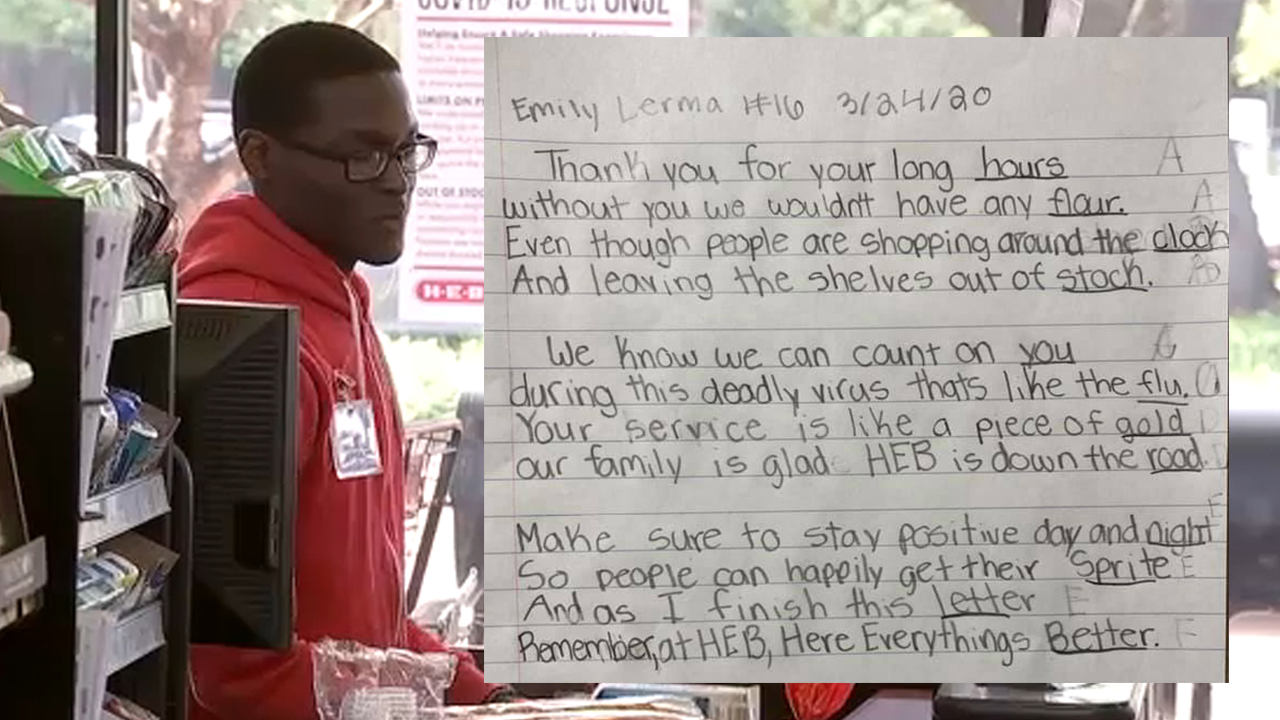 COVID-19 RESPONSE
Helping Ensure a Safe Shopping
LIMITS ON
OUT OF STOC
H-E-B
Emily Lerma #16 3/24/20
Thank you for your long hours A
without you we wouldn't have any flour. A
Even though people are shopping around the clock
And leaving the shelves out of stock.
We know we can count on you
during this deadly virus thats like the flu.
Your service is like a piece of gold
our family is glad HEB is down the road.
Make sure to stay positive day and night E
So people can happily get their Sprite E
And as I finish this letter F
Remember, at HEB, Here Everythings Better. F